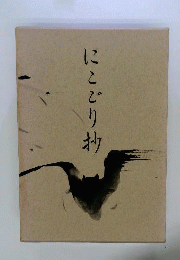 にこごり抄